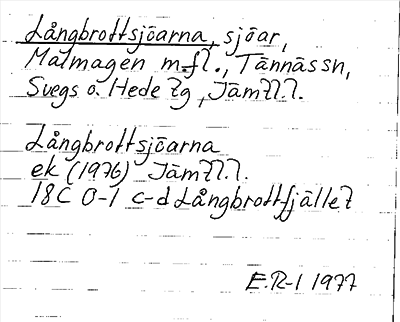 Långbrottsjöarna, sjöar,
Malmagen m.fl., Tännäs sn,
Svegs o. Hede tg, Jämtl.l.
Långbrottsjöarna
ek (1976) Jämtl.l.
18C 0-1 c-d Långbrottfjället
E.R-l 1977